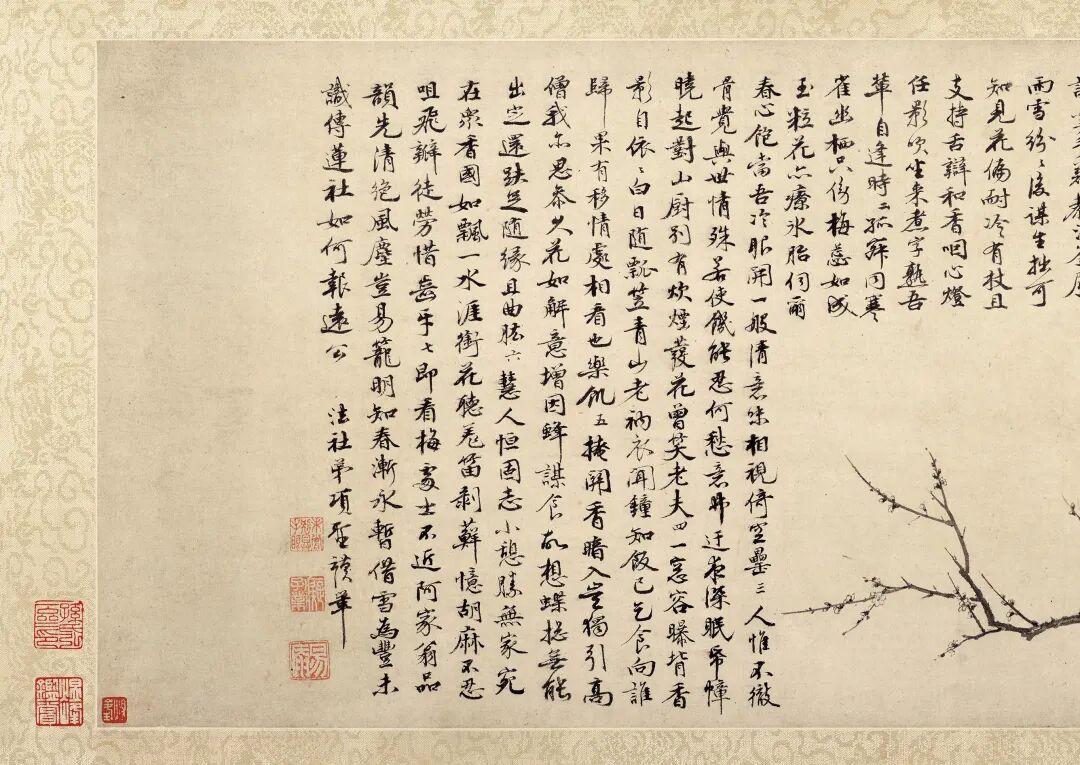 雨雪紛〻後謀生拙可
知見花偏耐冷有杖且
支持舌辯和香咽心燈
任影吹坐来煮字熟吾
輩自逢時二孤癖同寒
雀幽栖只傍梅蕊如成
玉粒花亦療冰胎伺爾
春心飽當吾冷眼開一般清意味相視倚空罍三人惟不徹
骨覺與世情殊若使饑能忍何愁意迂夜深眠帋幛
曉起對山厨别有炊煙發花曾笑老夫四一窓容曝背香
影自依〻白日随瓢笠青山老衲衣聞鐘知飯已乞食向誰
歸果有移情處相看也樂飢五掩關香暗入豈獨引高
僧我亦思參久花如解意增因蜂謀食故想蝶無能
出定還趺足随緣且曲肱六慧人恒固志小憩勝無家宛
在衆香國如飄一水涯銜花聽羌笛剥蘚憶胡麻不忍
咀飛瓣徒勞惜齒牙七即看梅處士不近阿家翁品
韻先清絶風塵豈易籠明知春漸永暫借雪為豐未
識傳蓮社如何報遠公 法社弟項聖謨草